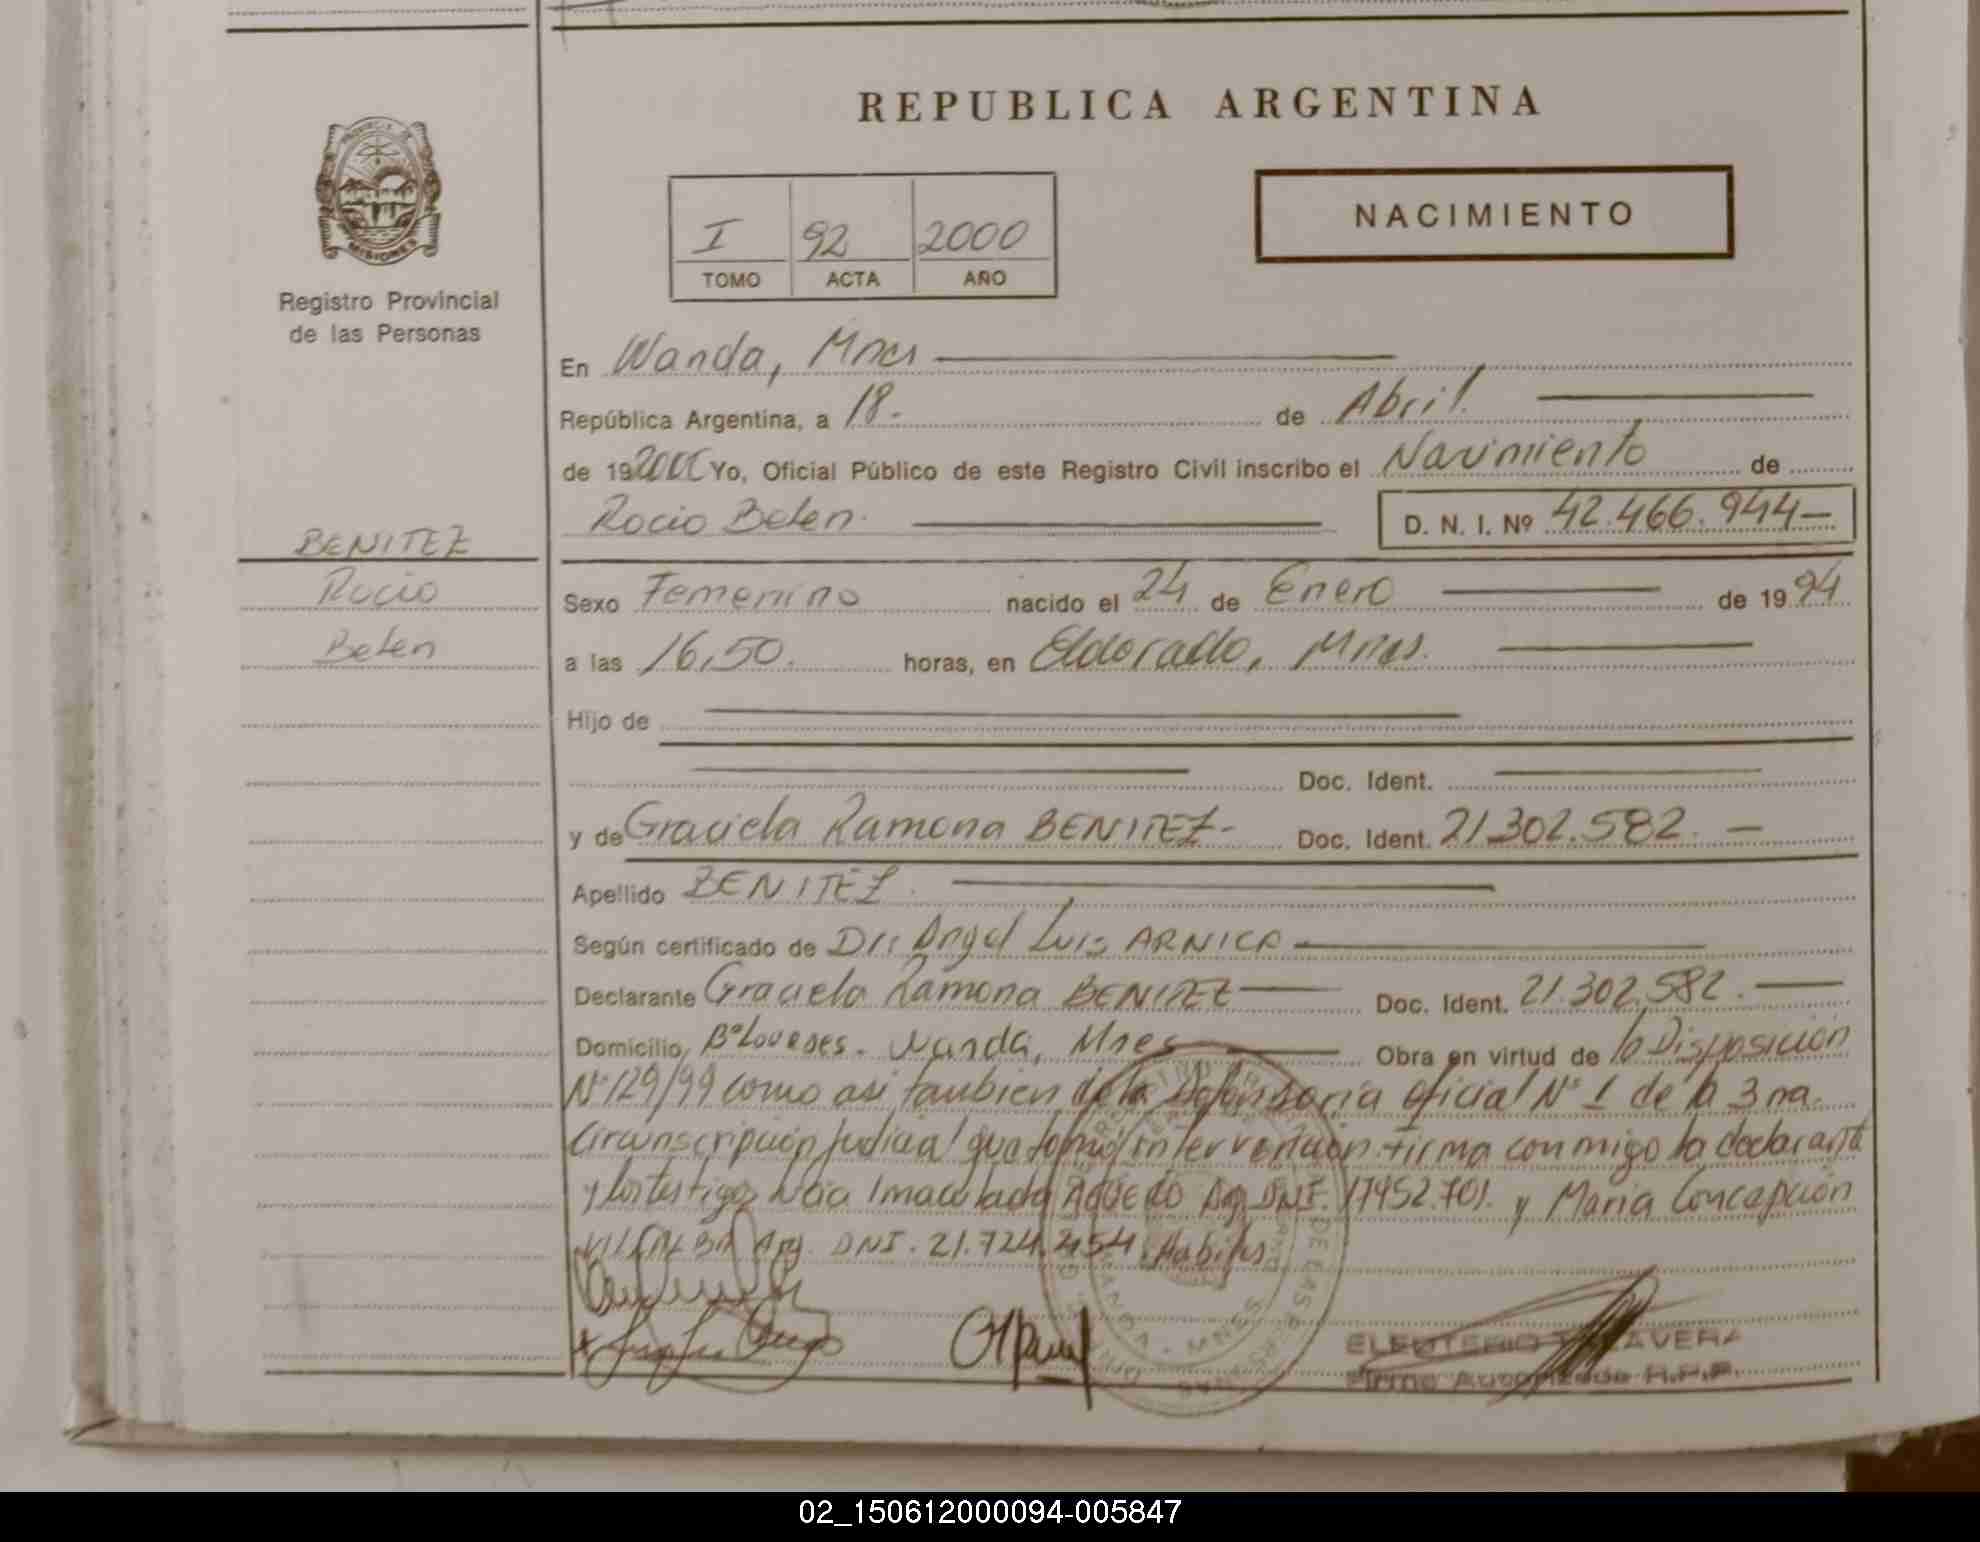 REPUBLICA ARGENTINA
PROVINCIA DE
MISIONES
Registro Provincial
de las Personas
NACIMIENTO
I 92 2000
TOMO ACTA AÑO
En Wanda, Mnes
República Argentina, a 18. de Abril.
de 192000 Yo, Oficial Público de este Registro Civil inscribo el Nacimiento de
Rocio Belen. D. N. I. Nº 42.466.944-
BENITEZ
Rocio
Belen
Sexo Femenino nacido el 24 de Enero de 1994
a las 16,50. horas, en Eldorado, Mnes.
Hijo de
Doc. Ident.
y de Graciela Ramona BENITEZ- Doc. Ident. 21.302.582. -
Apellido BENITEZ.
Según certificado de Dr: Angel Luis ARNICA
Declarante Graciela Ramona BENITEZ Doc. Ident. 21.302.582.
Domicilio Bº Lourdes. Wanda, Mnes Obra en virtud de la Disposición
Nº 129/99 como asi tambien de la Defensoria oficial Nº 1 de la 3 na.
Circunscripción Judicial que tomó intervención. firma conmigo la declarante
y los testigos Imaculada AGUERO Arg. DNI. 17452.701. y Maria Concepción
VILLALBA Arg. DNI. 21.724.454. Habiles.
WANDA - MNES
ELEUTERIO TALAVERA
Firma Autorizada R.P.P.
02_150612000094-005847